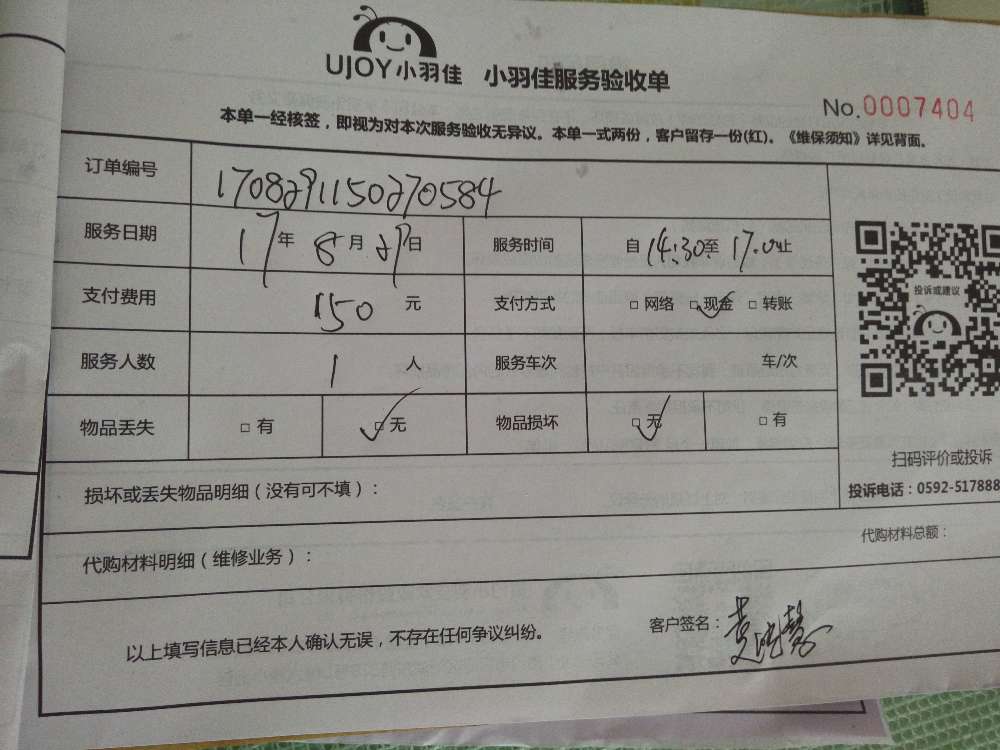 UJOY小羽佳 小羽佳服务验收单
No.0007404
本单一经核签，即视为对本次服务验收无异议。本单一式两份，客户留存一份(红)。《维保须知》详见背面。
订单编号 1708291150270584
服务日期 17年 8月 29日 服务时间 自 14:30至 17:0止
支付费用 150 元 支付方式 □网络 □现金 □转账
服务人数 1 人 服务车次 车/次
物品丢失 □有 □无 物品损坏 □无 □有
投诉或建议
扫码评价或投诉
投诉电话：0592-517888
损坏或丢失物品明细（没有可不填）：
代购材料明细（维修业务）： 代购材料总额：
以上填写信息已经本人确认无误，不存在任何争议纠纷。 客户签名：